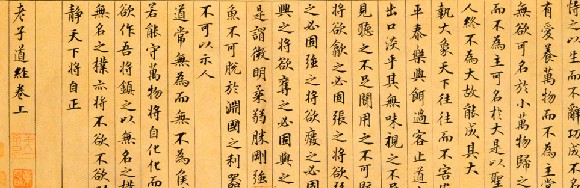 恃之以生而不辭功成不
有愛養萬物而不為主常
無欲可名於小萬物歸之
而不為主可名於大是以聖
人終不為大故能成其大
執大象天下往往而不害
平泰樂與餌過客止道
出口淡乎其無味視之
見聽之不足聞用之不可
將欲歙之必固張之將欲
之必固强之將欲廢之必
興之將欲奪之必固與之
是謂微明柔弱勝剛强
魚不可脫於淵國之利器
不可以示人
道常無為而無不為侯
若能守萬物將自化化而
欲作吾將鎮之以無名之樸
無名之樸亦將不欲不欲
靜天下將自正
老子道經卷上